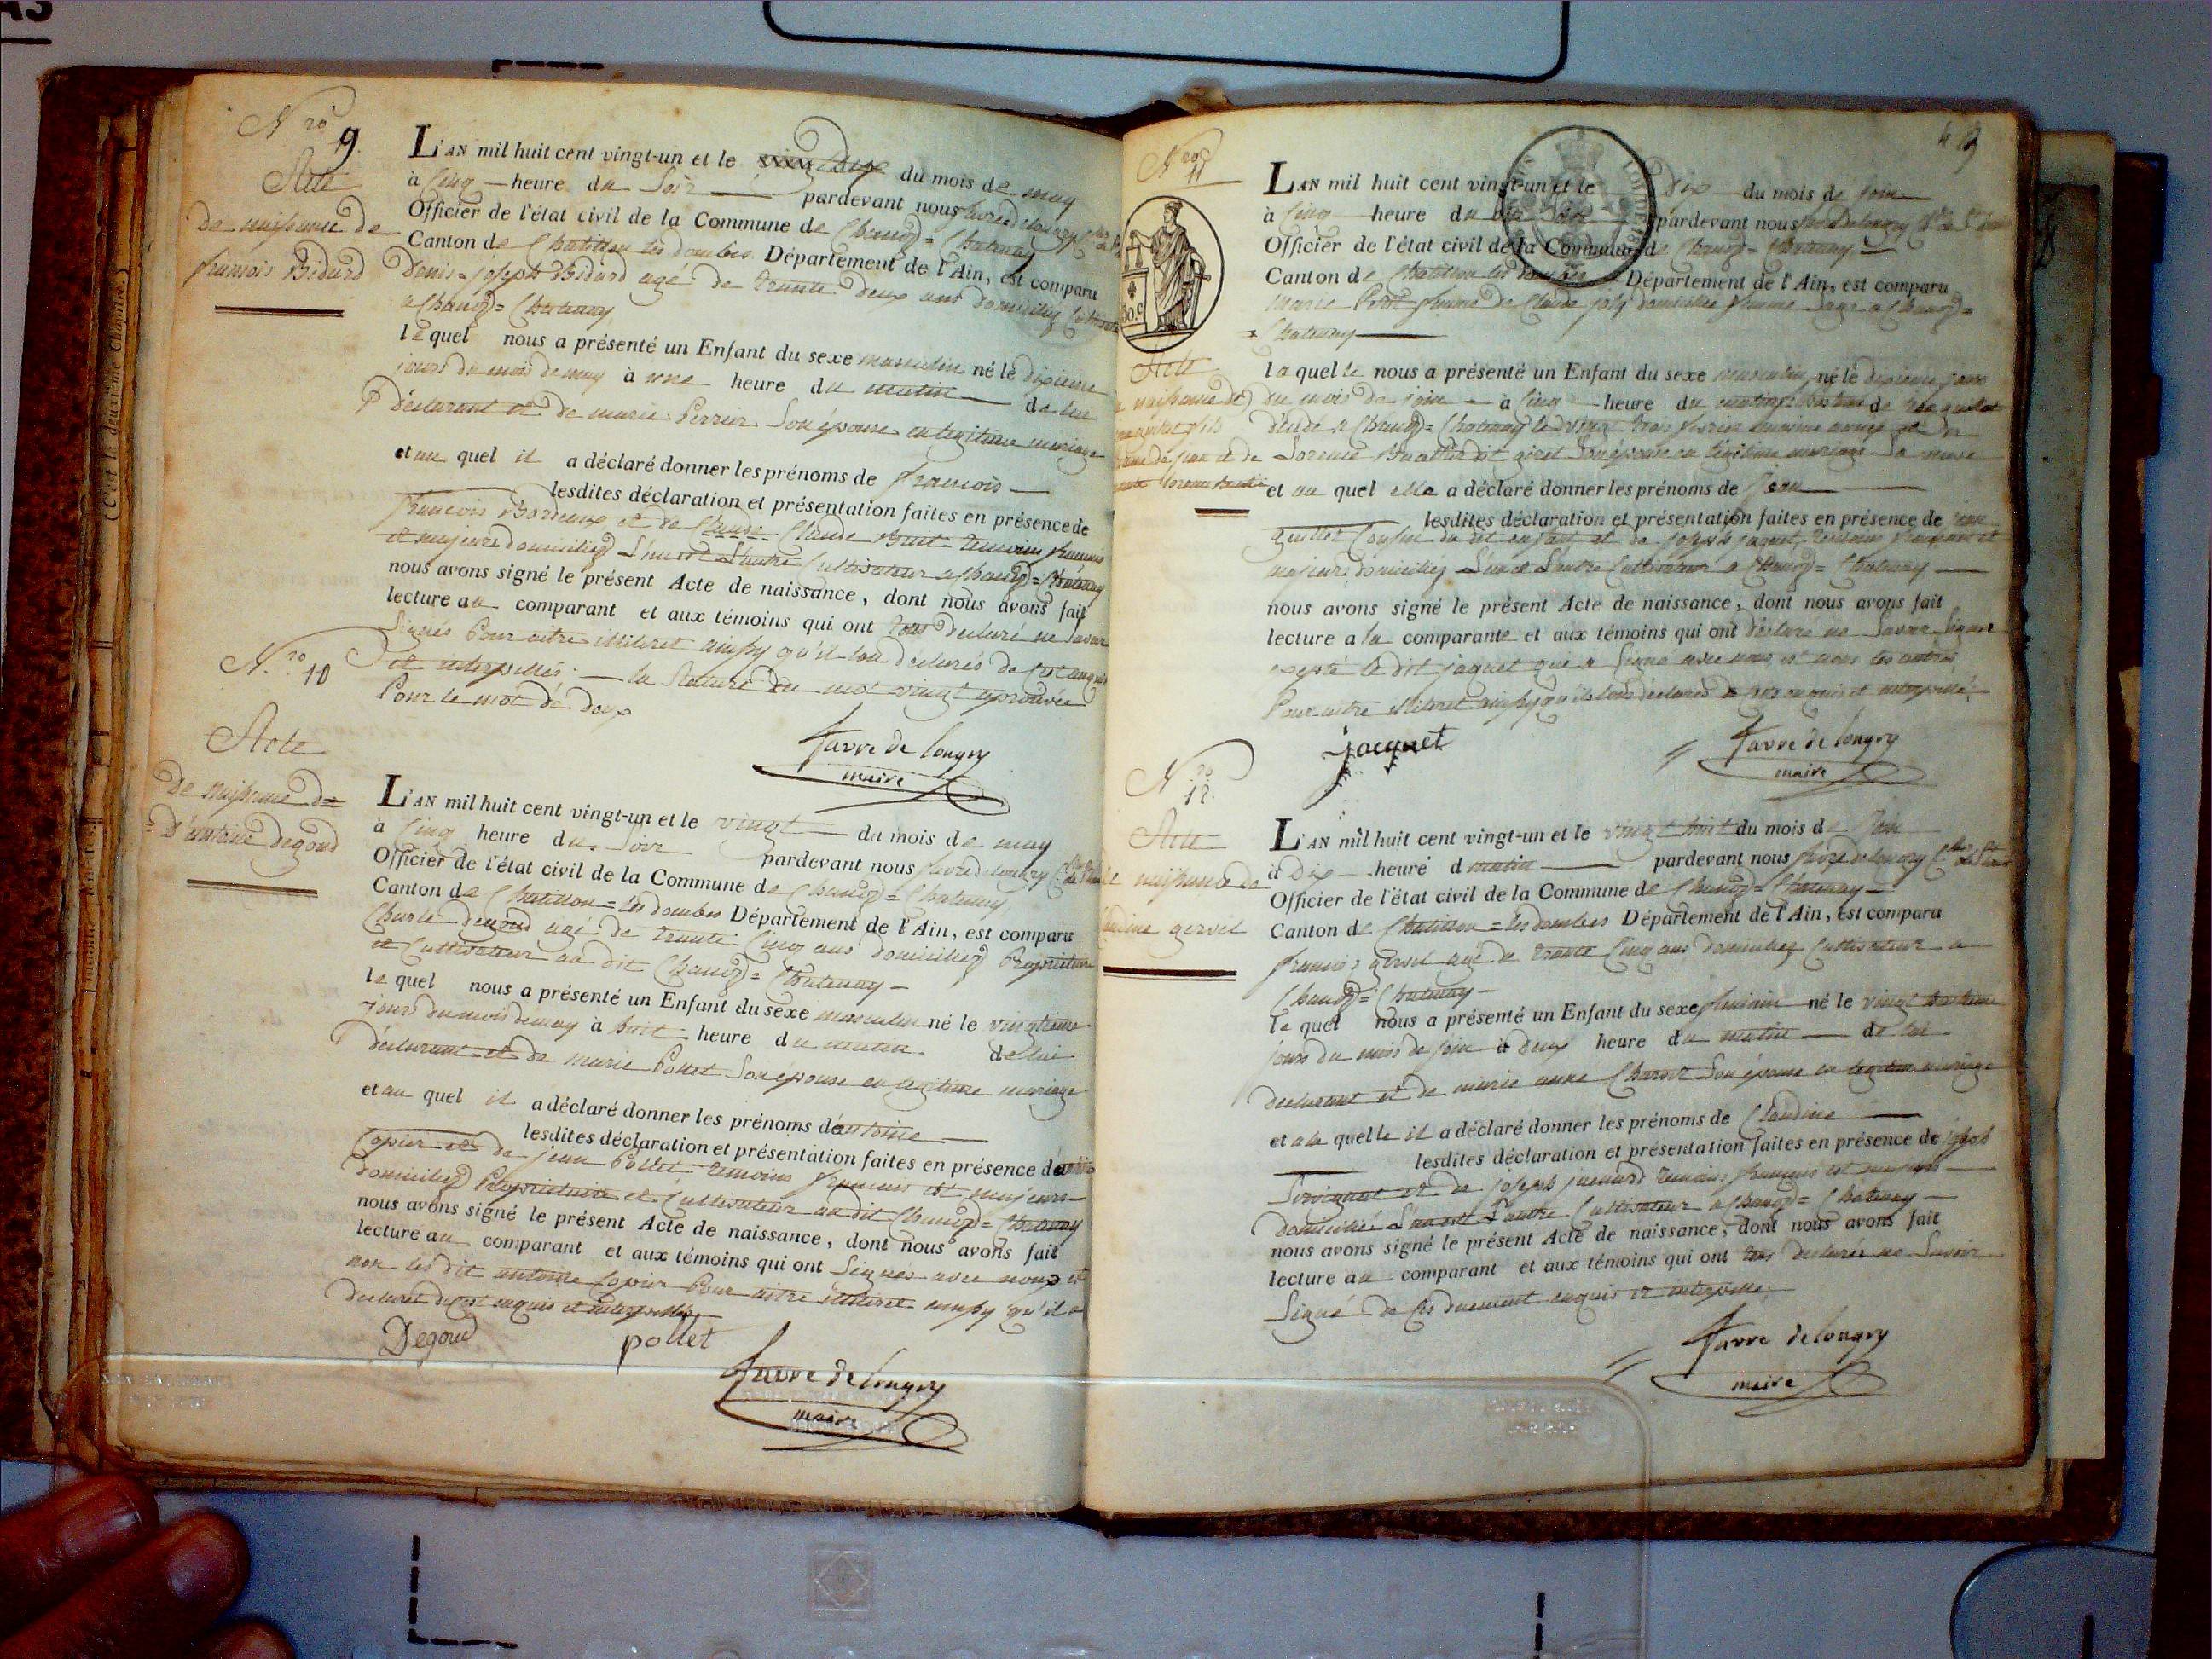 N.ro 9.
Acte
de naissance de
francois Bidard
L'AN mil huit cent vingt-un et le dix du mois de may
à Cinq heure du Soir pardevant nous favre de longry
Officier de l'état civil de la Commune de Chanoz = Chatenay
Canton de Chatillon les dombes Département de l'Ain, est comparu
Denis = joseph Bidard agé de trante deux ans domiciliez
a Chanoz = Chatenay
le quel nous a présenté un Enfant du sexe masculin né le dixieme
jours du mois de may à une heure du matin de lui
déclarant et de marie Perrier Son épouse en legitime mariage
et au quel il a déclaré donner les prénoms de francois
lesdites déclaration et présentation faites en présence de
francois Bordeaux et de Claude Claude temoins francais
et majeurs domiciliez L'un et L'autre Cultivateur a Chanoz = Chatenay
nous avons signé le présent Acte de naissance, dont nous avons fait
lecture au comparant et aux témoins qui ont tous declaré ne Savoir
Signés Pour aitre illiteret ainssy qu'il lon déclarés de
et interpellés; la Rature du mot vingt aprouvée
Pour le mot de
favre de longry
maire
N.ro 10
Acte
de naissance de
D'antoine degoud
L'AN mil huit cent vingt-un et le vingt du mois de may
à Cinq heure du Soir pardevant nous favre de longry
Officier de l'état civil de la Commune de Chanoz = Chatenay
Canton de Chatillon = les dombes Département de l'Ain, est comparu
Charle degoud agé de trante Cinq ans domiciliez Proprietaire
et Cultivateur au dit Chanoz = Chatenay
le quel nous a présenté un Enfant du sexe masculin né le vingtieme
jours du mois de may à huit heure du matin de lui
déclarant et de marie Pollet Son epouse en legitime mariage
et au quel il a déclaré donner les prénoms d'antoine
lesdites déclaration et présentation faites en présence de
Copier et de jean Pollet temoins francais et majeurs
domiciliez Proprietaire et Cultivateur au dit Chanoz = Chatenay
nous avons signé le présent Acte de naissance, dont nous avons fait
lecture au comparant et aux témoins qui ont Signés avec nous et
non les dit antoine Copier Pour aitre illiteret ainssy qu'il a
declaret de enquis et interpellés
Degoud pollet
favre de longry
maire
N.ro 11
Acte
naissance de
L'AN mil huit cent vingt-un et le Dix du mois de join
à Cinq heure du Soir pardevant nous favre de longry
Officier de l'état civil de la Commune de Chanoz = Chatenay
Canton de Chatillon les dombes Département de l'Ain, est comparu
marie femme de Claude joly domiciliée femme Sage a Chanoz =
Chatenay
la quelle nous a présenté un Enfant du sexe masculin né le dixieme jours
du mois de join à Cinq heure du matin de
décédé a Chanoz = Chatenay le vingt trois fevrier et de
Lorence dit Son épouse en légitime mariage Sa
et au quel elle a déclaré donner les prénoms de jean
lesdites déclaration et présentation faites en présence de
guillet Cousin du dit enfant et de joseph jaquet temoins francais et
majeurs domiciliez L'un et L'autre Cultivateur a Chanoz = Chatenay
nous avons signé le présent Acte de naissance, dont nous avons fait
lecture a la comparante et aux témoins qui ont déclaré ne Savoir Signer
exepté le dit jaquet qui a Signé avec nous et non les autres
Pour aitre illiteret ainssy qu'ils lons déclarés de enquis et interpellé
jacquet
favre de longry
maire
N.ro 12.
Acte
naissance de
gervet
L'AN mil huit cent vingt-un et le vingt huit du mois de join
à Dix heure d matin pardevant nous favre de longry
Officier de l'état civil de la Commune de Chanoz = Chatenay
Canton de Chatillon = les dombes Département de l'Ain, est comparu
francois gervet agé de trante Cinq ans domiciliez Cultivateur a
Chanoz = Chatenay
le quel nous a présenté un Enfant du sexe feminin né le vingt huitieme
jours du mois de join à deux heure du matin de lui
declarant et de marie anne Son épouse en legitime mariage
et a la quelle il a déclaré donner les prénoms de Claudine
lesdites déclaration et présentation faites en présence de
et de joseph temoins francais et majeurs
domiciliés L'un et L'autre Cultivateur a Chanoz = Chatenay
nous avons signé le présent Acte de naissance, dont nous avons fait
lecture au comparant et aux témoins qui ont tous declarés ne Savoir
Signé de Ces duement enquis et interpellé
favre de longry
maire